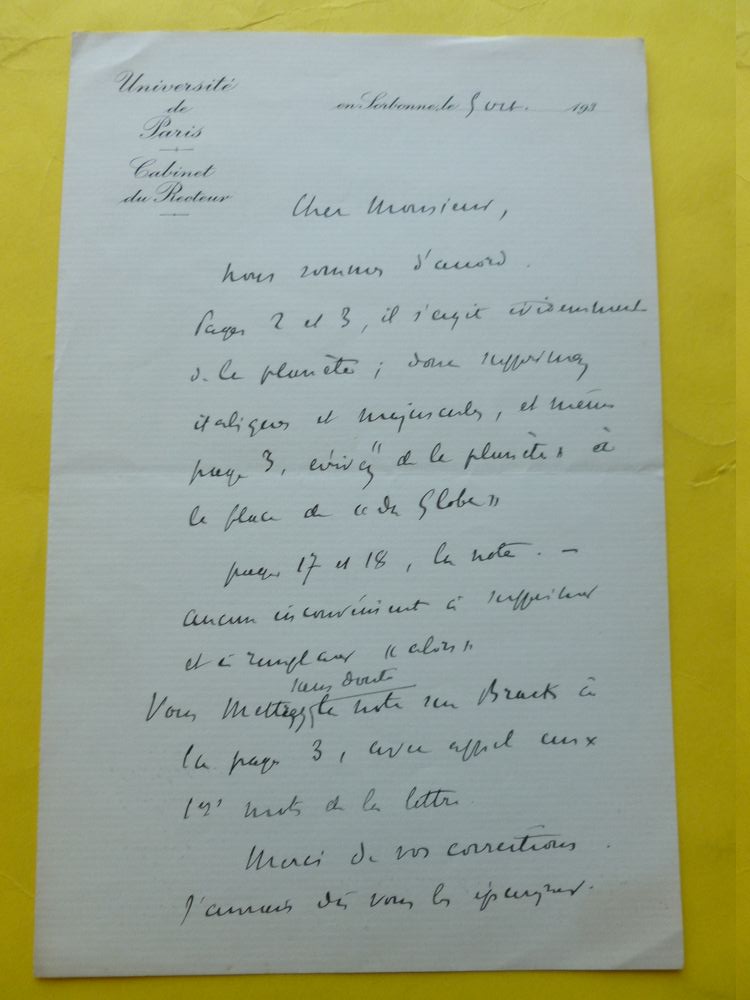 Université
de
Paris
Cabinet
du Recteur
en Sorbonne, le 5 oct. 193
Cher Monsieur,
Nous sommes d'accord.
Pages 2 et 3, il s'agit évidemment
de la planète ; donc supprimez
italiques et majuscules, et même
page 3, écrivez "de la planète» à
la place de «du Globe»
pages 17 et 18, la note. —
aucun inconvénient à supprimer
et à remplacer «alors»
sans doute
Vous mettez la note sur à
la page 3, avec appel aux
1ers mots de la lettre
Merci de vos corrections.
J'aurais dû vous les épargner.